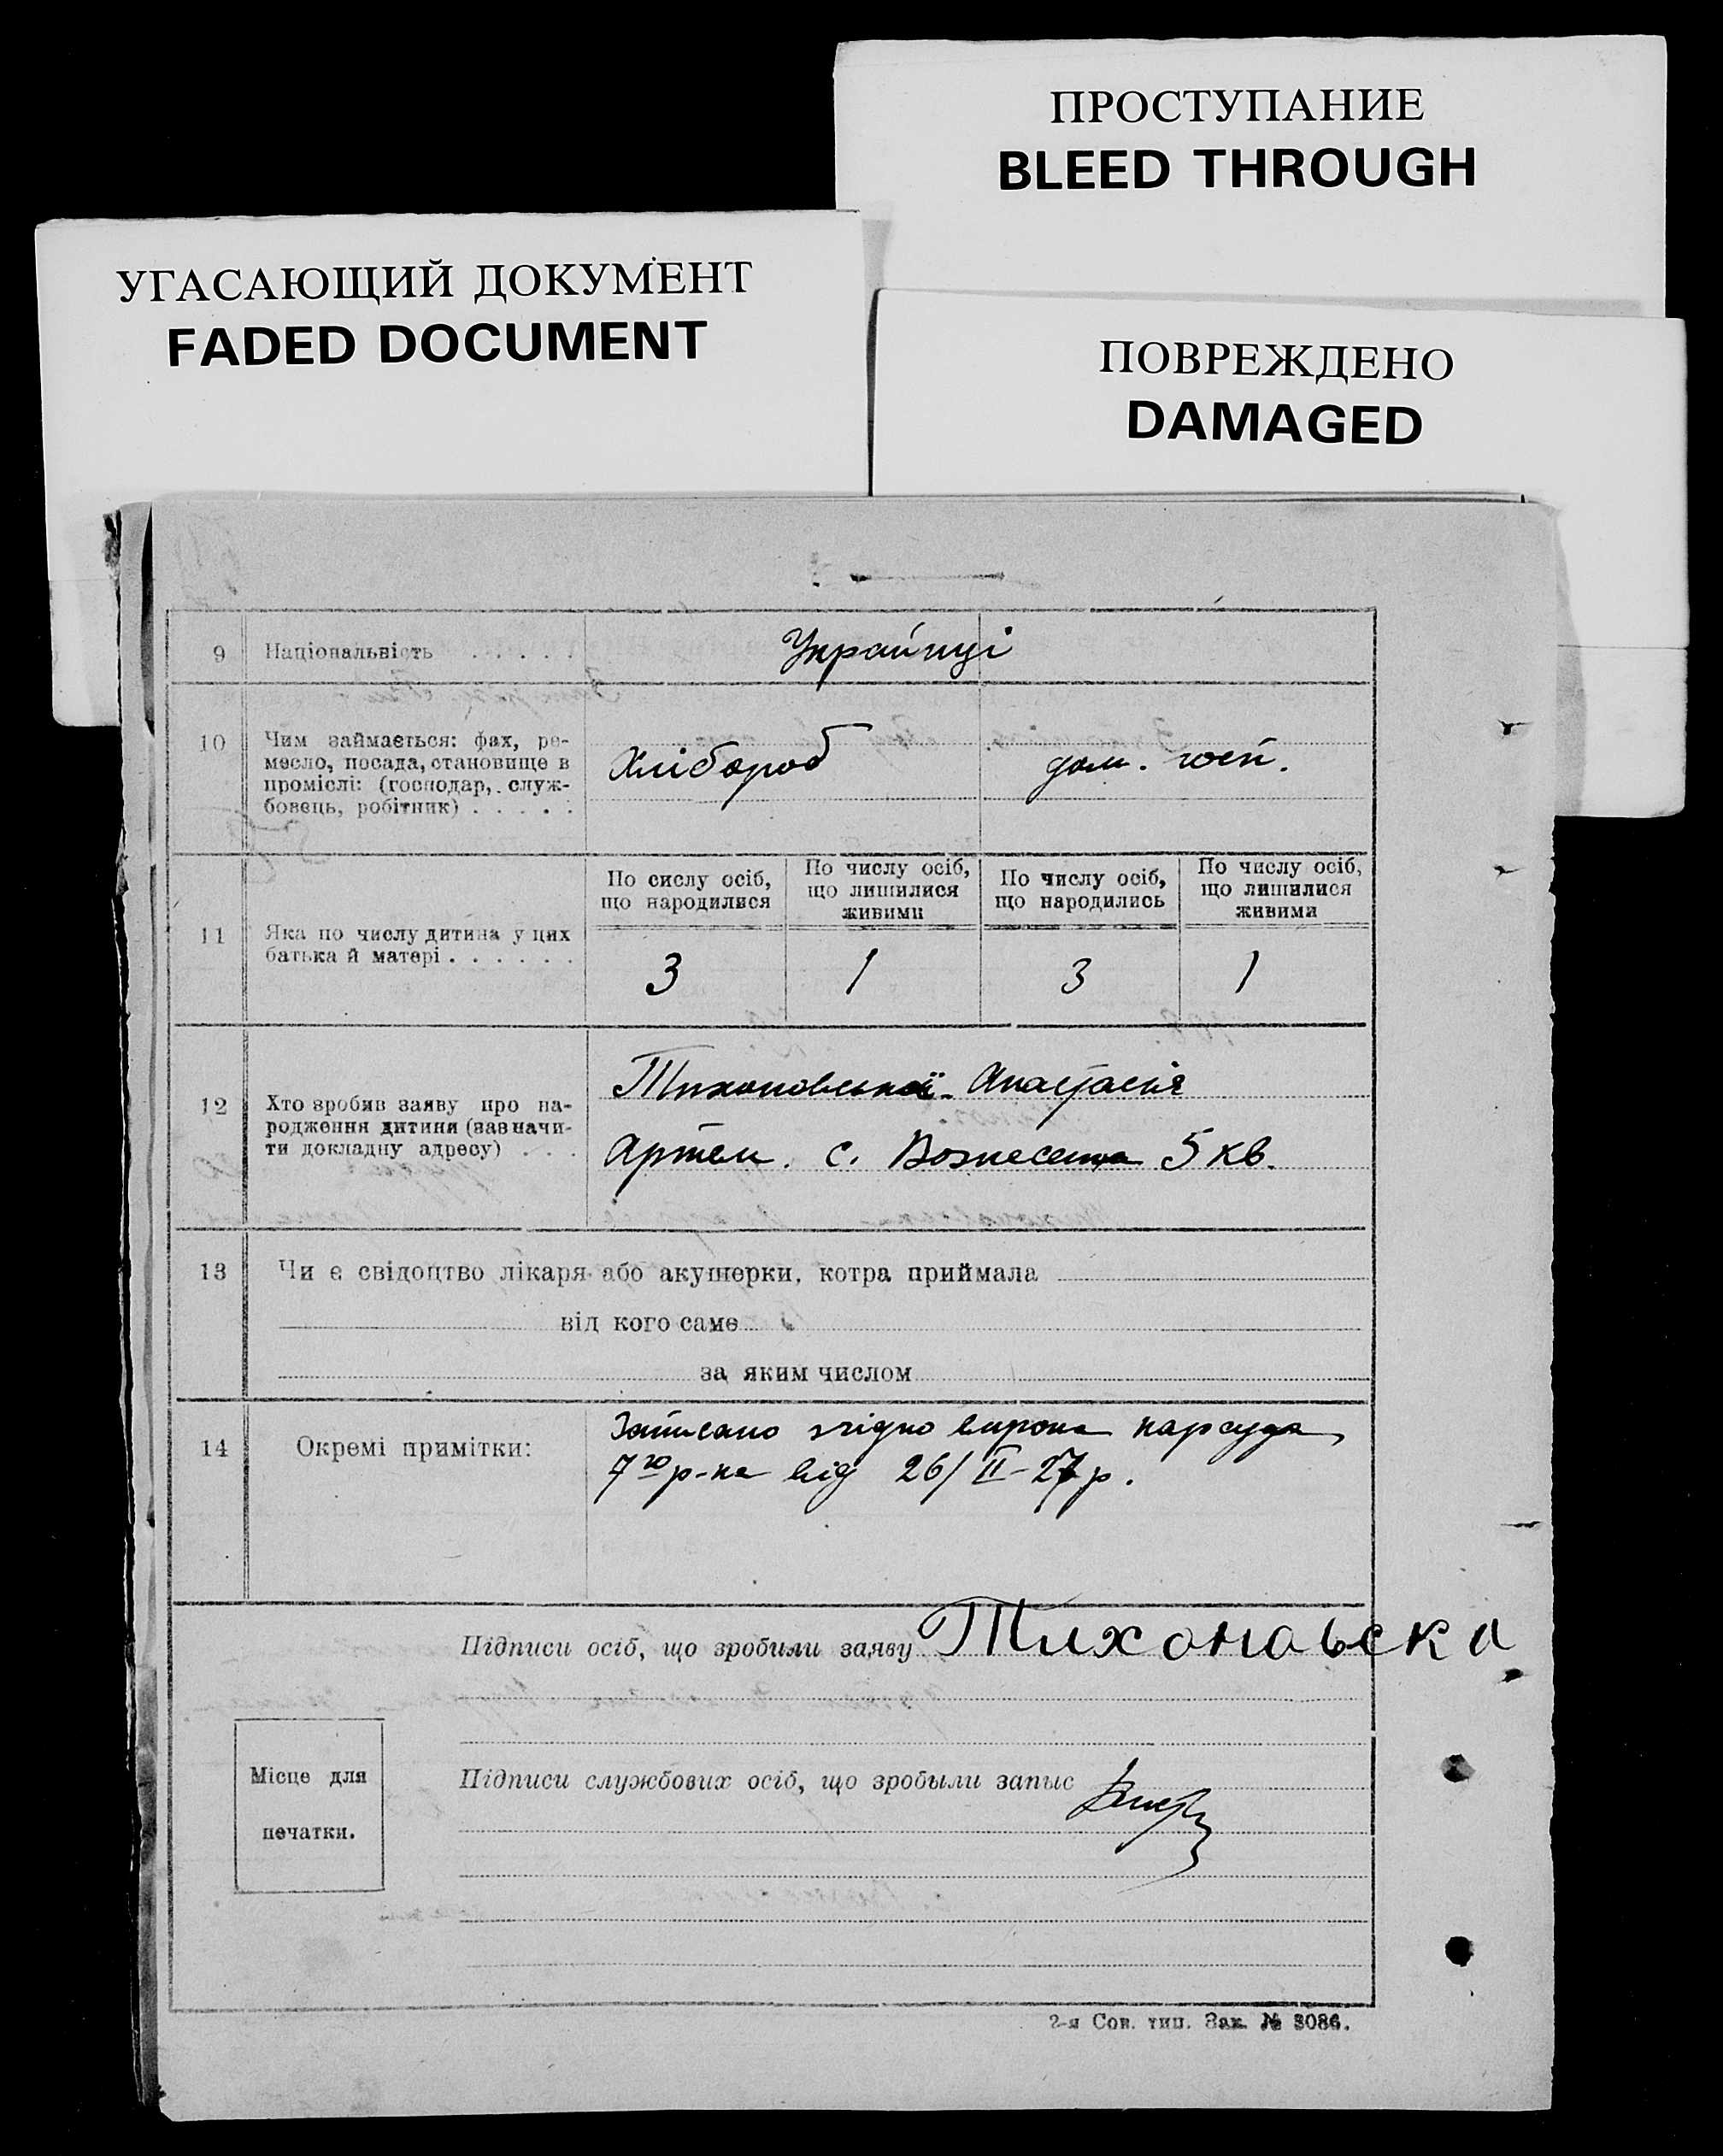 ПРОСТУПАНИЕ
BLEED THROUGH
УГАСАЮЩИЙ ДОКУМЕНТ
FADED DOCUMENT
ПОВРЕЖДЕНО
DAMAGED
9 Національність . . . . . Українці
10 Чим займається: фах, ре-
месло, посада, становище в
проміслі: (господар, служ-
бовець, робітник) . . . . .
Хлібороб дом. госп.
11 Яка по числу дитина у цих
батька й матері . . . . . .
По сислу осіб,
що народилися
По числу осіб,
що лишилися
живими
По числу осіб,
що народились
По числу осіб,
що лишилися
живими
3 1 3 1
12 Хто зробив заяву про на-
родження дитини (зазначи-
ти докладну адресу) . . .
Тихоновської Анастасія
Артем. с. Вознесенка 5 кв.
13 Чи є свідоцтво лікаря або акушерки, котра приймала
від кого саме
за яким числом
14 Окремі примітки:
Записано згідно вирока нарсуда
7го р-на від 26/II-27 р.
Підписи осіб, що зробили заяву Тихоновска
Місце для
печатки.
Підписи службових осіб, що зробыли запыс
2-я Сов. тип. Зак. № 3086.